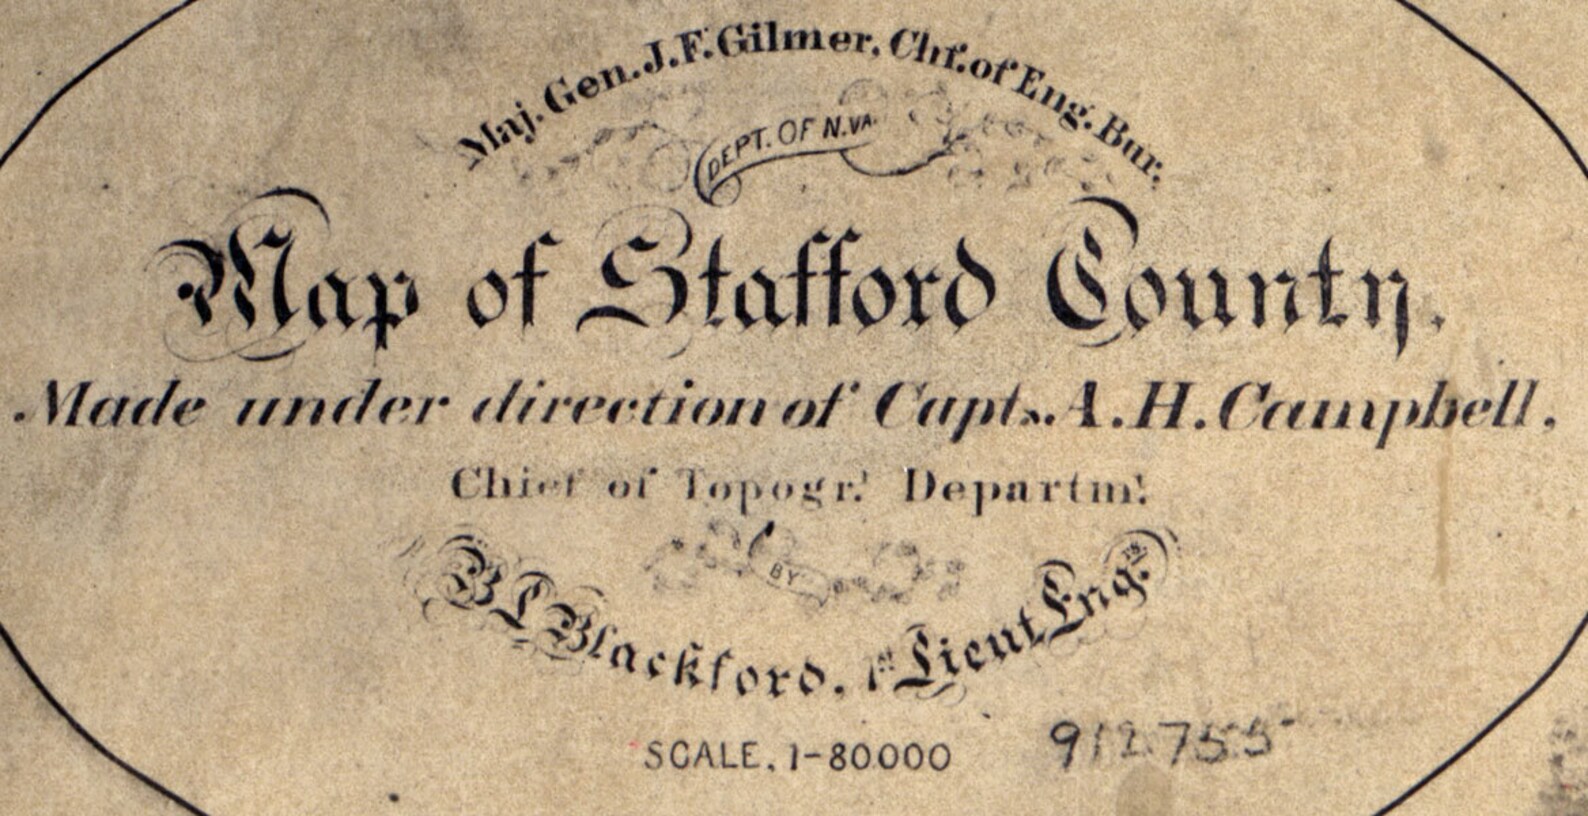 Maj. Gen. J. F. Gilmer, Chf. of Eng. Bur.
DEPT. OF N. VA.
Map of Stafford County.
Made under direction of Capt. A. H. Campbell,
Chief of Topogr.l Departm.t
BY
B L Blackford, 1st Lieut Eng.rs
SCALE, 1-80000
912.755